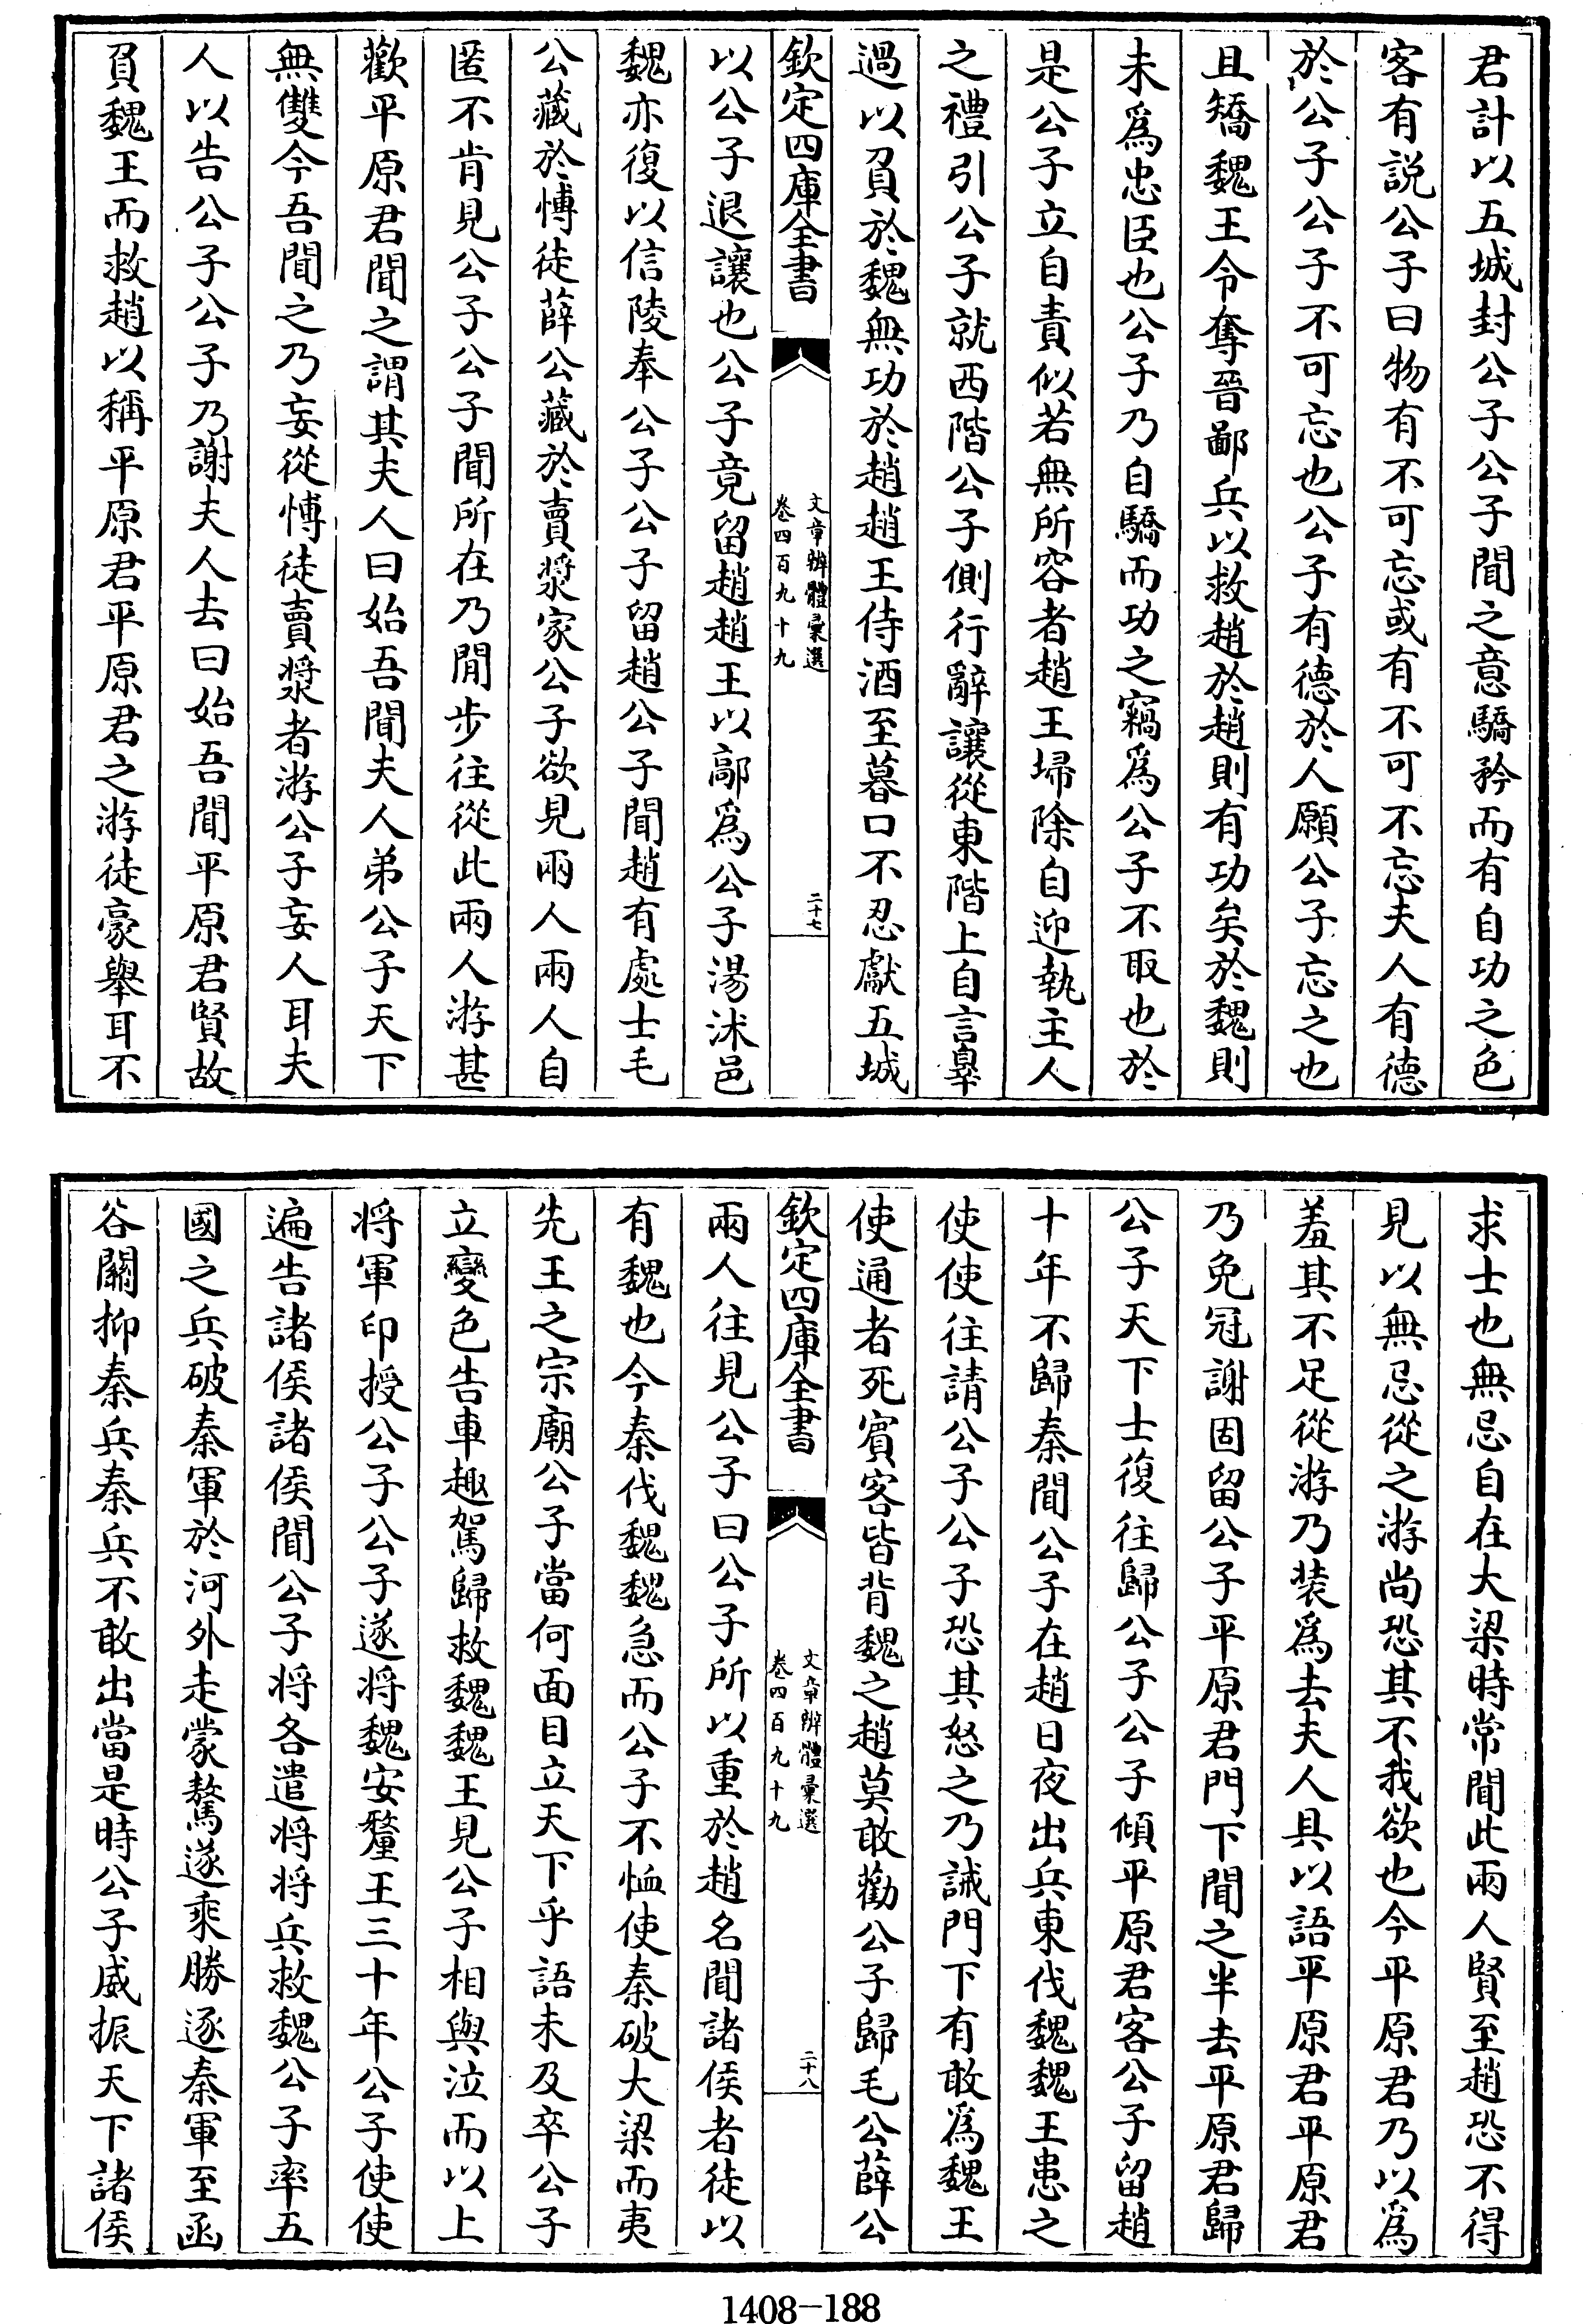 君計以五城封公子公子聞之意驕矜而有自功之色
客有説公子曰物有不可忘或有不可不忘夫人有德
於公子公子不可忘也公子有德於人願公子忘之也
且矯魏王令奪晉鄙兵以救趙於趙則有功矣於魏則
未為忠臣也公子乃自驕而功之竊為公子不取也於
是公子立自責似若無所容者趙王埽除自迎執主人
之禮引公子就西階公子側行辭讓從東階上自言辠
過以負於魏無功於趙趙王侍酒至暮口不忍獻五城
欽定四庫全書
文章辨體彚選
卷四百九十九
二十七
以公子退讓也公子竟留趙趙王以鄗為公子湯沐邑
魏亦復以信陵奉公子公子留趙公子聞趙有處士毛
公藏於愽徒薛公藏於賣漿家公子欲見兩人兩人自
匿不肯見公子公子聞所在乃閒步往從此兩人游甚
歡平原君聞之謂其夫人曰始吾聞夫人弟公子天下
無雙今吾聞之乃妄從愽徒賣漿者游公子妄人耳夫
人以告公子公子乃謝夫人去曰始吾聞平原君賢故
負魏王而救趙以稱平原君平原君之游徒豪舉耳不
求士也無忌自在大梁時常聞此兩人賢至趙恐不得
見以無忌從之游尚恐其不我欲也今平原君乃以為
羞其不足從游乃装為去夫人具以語平原君平原君
乃免冠謝固留公子平原君門下聞之半去平原君歸
公子天下士復往歸公子公子傾平原君客公子留趙
十年不歸秦聞公子在趙日夜出兵東伐魏魏王患之
使使往請公子公子恐其怒之乃誡門下有敢為魏王
使通者死賓客皆背魏之趙莫敢勸公子歸毛公薛公
欽定四庫全書
文章辨體彚選
卷四百九十九
二十八
兩人往見公子曰公子所以重於趙名聞諸侯者徒以
有魏也今秦伐魏魏急而公子不恤使秦破大梁而夷
先王之宗廟公子當何面目立天下乎語未及卒公子
立變色告車趣駕歸救魏魏王見公子相與泣而以上
將軍印授公子公子遂將魏安釐王三十年公子使使
遍告諸侯諸侯聞公子將各遣將將兵救魏公子率五
國之兵破秦軍於河外走蒙驁遂乘勝逐秦軍至函
谷關抑秦兵秦兵不敢出當是時公子威振天下諸侯
1408-188